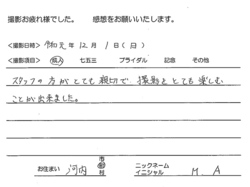 撮影お疲れ様でした。　感想をお願いいたします。
＜撮影日時＞ 令和元年 12月 1日（日）
＜撮影内容＞ 成人　七五三　ブライダル　記念　その他
スタッフの方がとても親切で 撮影をとても楽しむ
ことが出来ました。
お住まい 河内 市 町 村 ニックネーム イニシャル M. A